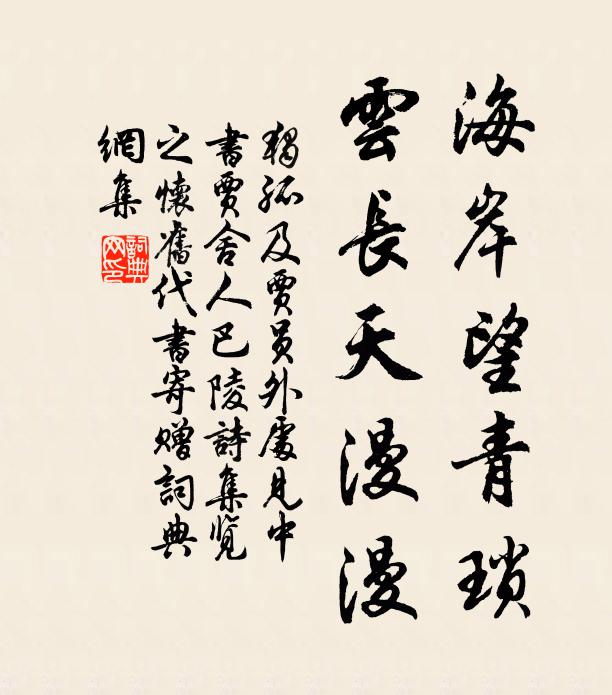 海岸望青瑣
雲長天漫漫
獨孤及賈員外處見中
書賈舍人巴陵詩集覽
之懷舊代書寄贈詞典
網集
詞典
网印